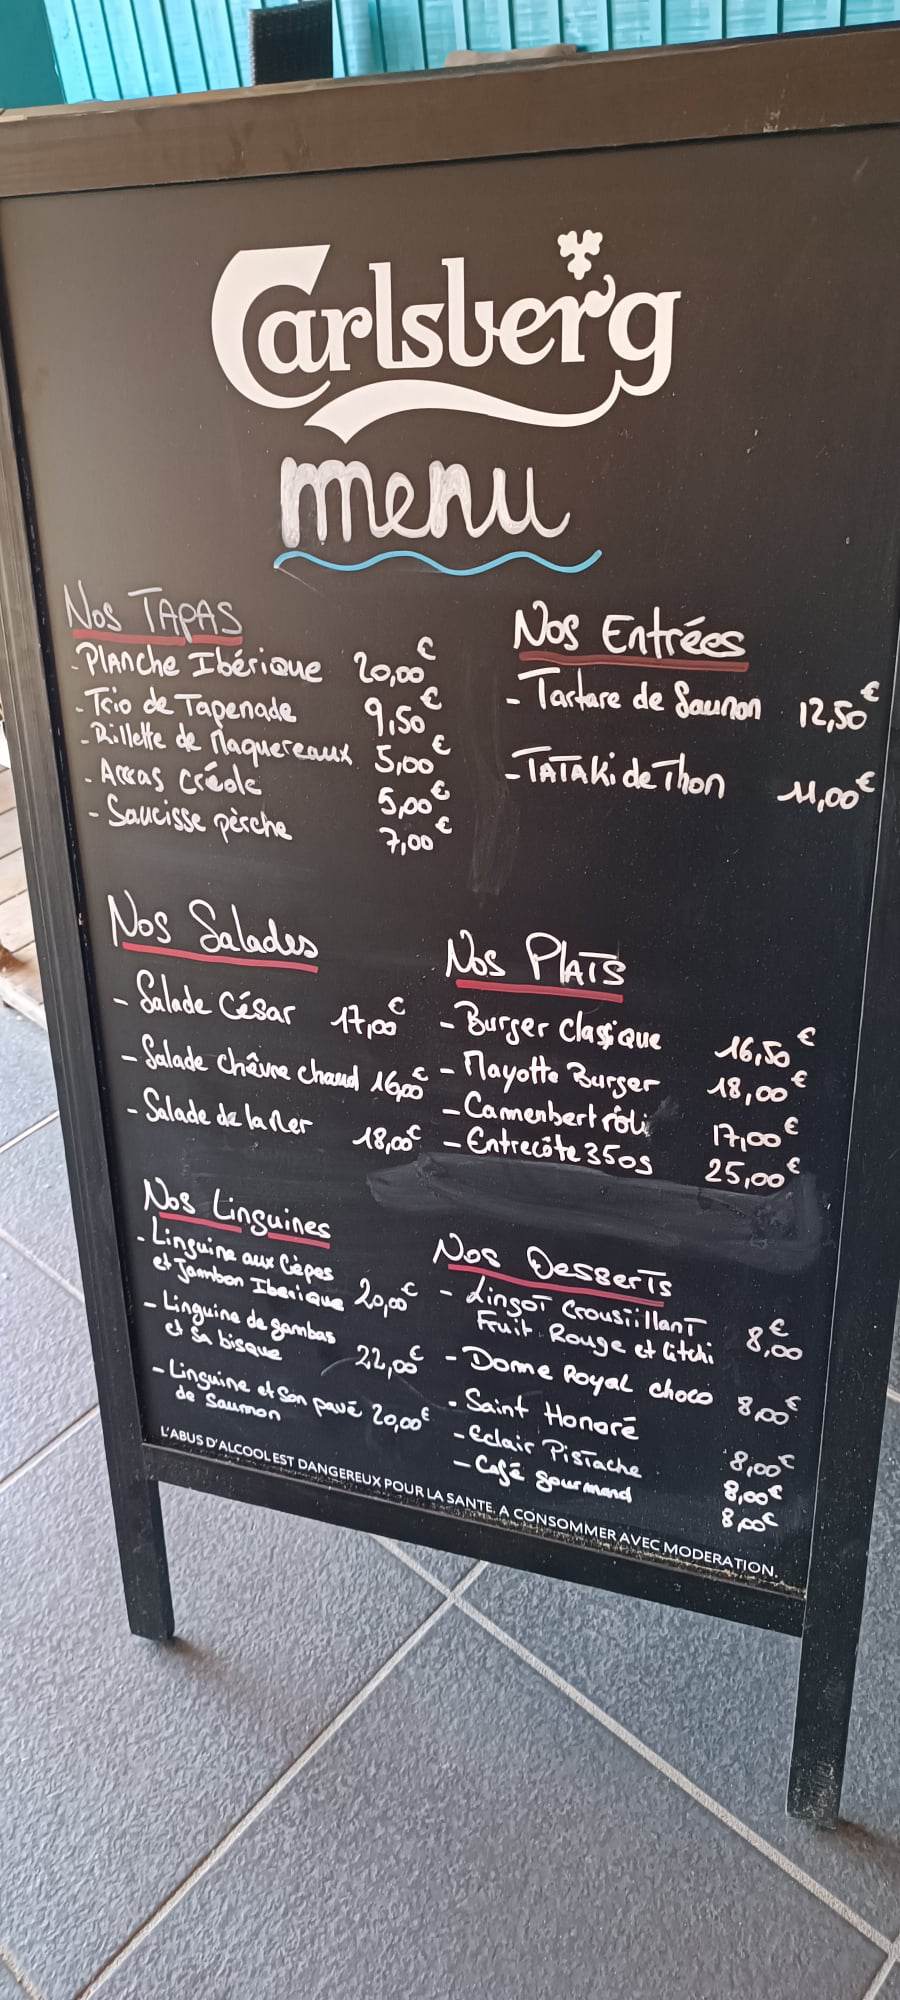 Carlsberg
menu
Nos TAPAS
- Planche Ibérique 20,00€
- Trio de Tapenade 9,50€
- Rillette de Maquereaux 5,00€
- Accas Créole 5,00€
- Saucisse pèrche 7,00€
Nos Entrées
- Tartare de Saumon 12,50€
- TATAKi de Thon 11,00€
Nos Salades
- Salade César 17,00€
- Salade Chêvre chaud 16,00€
- Salade de la Mer 18,00€
Nos PLATS
- Burger classique 16,50€
- Mayotte Burger 18,00€
- Camembert rôti 17,00€
- Entrecôte 350g 25,00€
Nos Linguines
- Linguine aux Cèpes
et Jambon Iberique 20,00€
- Linguine de gambas
et sa bisque 22,00€
- Linguine et Son pavé 20,00€
de Saumon
Nos DesserTs
- LingoT CrousTillanT
Fruit Rouge et Litchi 8,00€
- Dome Royal choco 8,00€
- Saint Honoré 8,00€
- Eclair Pistache 8,00€
- Café gourmand 8,00€
L'ABUS D'ALCOOL EST DANGEREUX POUR LA SANTE. A CONSOMMER AVEC MODERATION.